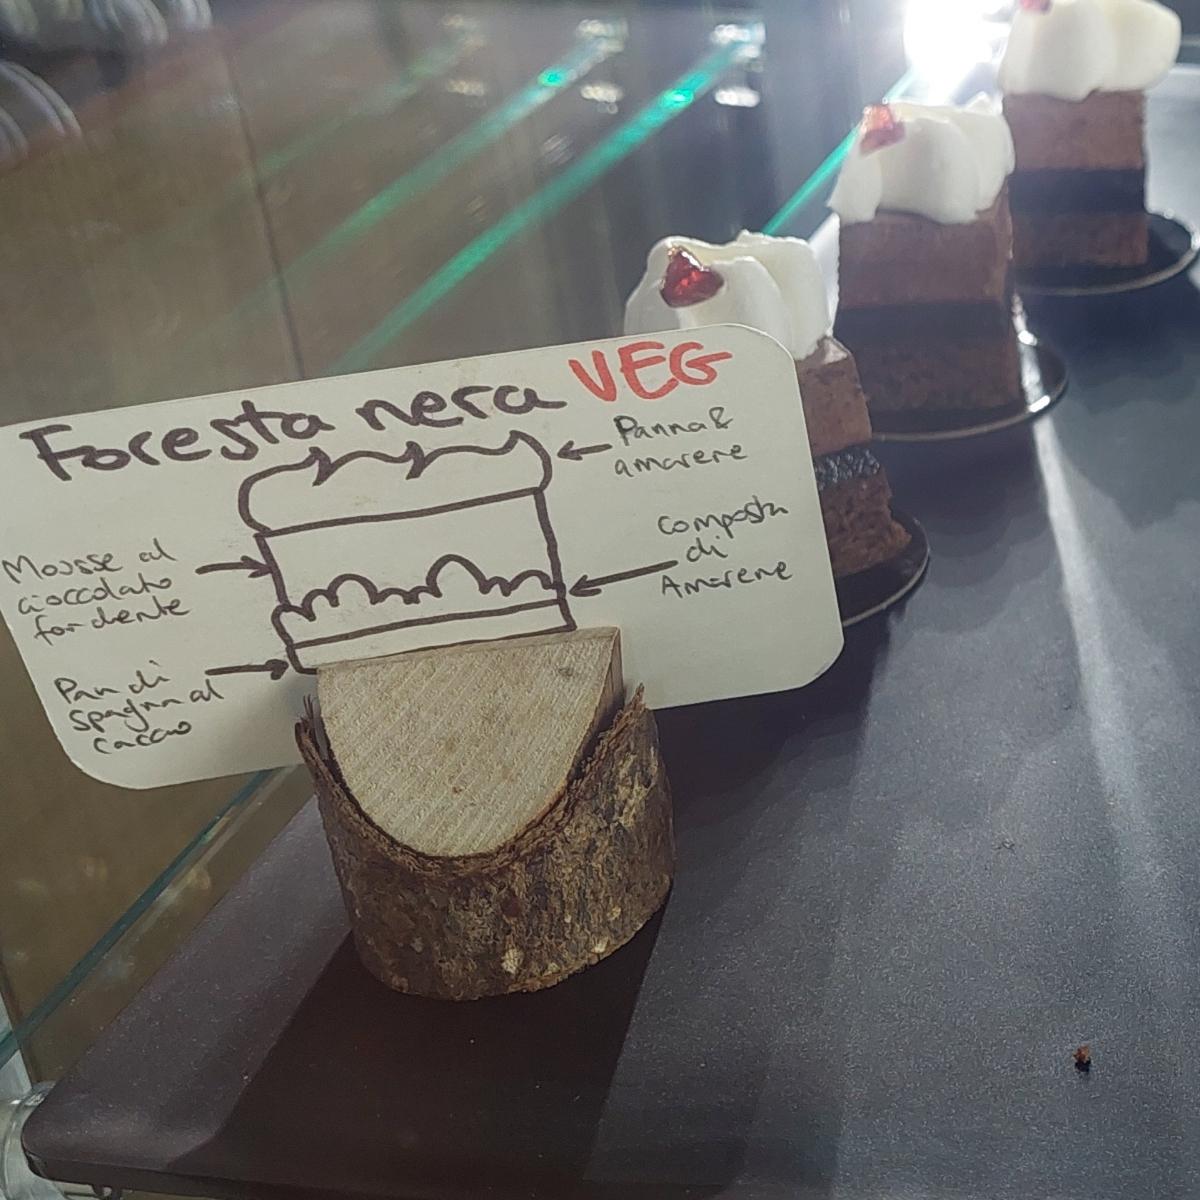 Foresta nera VEG
Panna &
amarene
Mousse al
cioccolato
fondente
composta
di
Amarene
Pan di
spagna al
cacao